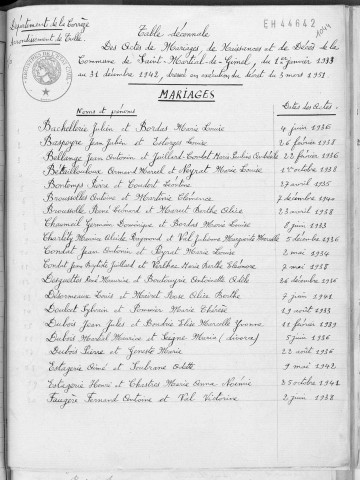 Département de la Corrèze
Arrondissement de Tulle.
EH 44642
Table décennale
Des Actes de Mariages, de Naissances et de Décès de la
Commune de Saint-Martial-de-Gimel, du 1er janvier 1933
au 31 décembre 1942, dressé en exécution du décret du 3 mars 1951
MARIAGES
Noms et prénoms
Dates des Actes.
Bachellerie Julien et Bordas Marie Louise 4 février 1936
Baspeyre Jean Julien et Estorges Louise 26 février 1938
Bellange Jean Antonin et 22 février 1936
Bétaillouloux Armand Marcel et Neyrat Marie Louise 1er octobre 1938
Bontemps Pierre et Coudert Léontine 27 avril 1935
Brousselles Antoine et Martinie Clémence 7 décembre 1940
Brousselle René Gérard et Berthe Alice 23 avril 1938
Chaumeil Germain Dominique et Bordas Marie Louise 8 juin 1933
Val Julienne Marguerite Marcelle 5 décembre 1936
Condat Jean Antonin et Peyrat Marie Louise 2 mai 1934
Condat Jean Baptiste Juillard et Marie Berthe Eléonore 7 mai 1938
René Maurice et Antoinette Adèle 26 décembre 1936
Louis et Rose Alice Berthe 7 juin 1941
Doubert Sylvain et Pommier Marie Thérèse 19 août 1933
Dubois Jean Jules et Elise Marcelle Yvonne 11 février 1939
Dubois Martial Maurice et Maria (divorce) 5 juin 1936
Dubois Pierre et Geneste Marie 22 août 1936
Estagerie Aimé et Soubrane Odette 9 mai 1942
Estagerie Henri et Chastres Marie Anna Noémie 25 octobre 1941
Faugère Fernand Antoine et Val Victorine 2 juin 1938